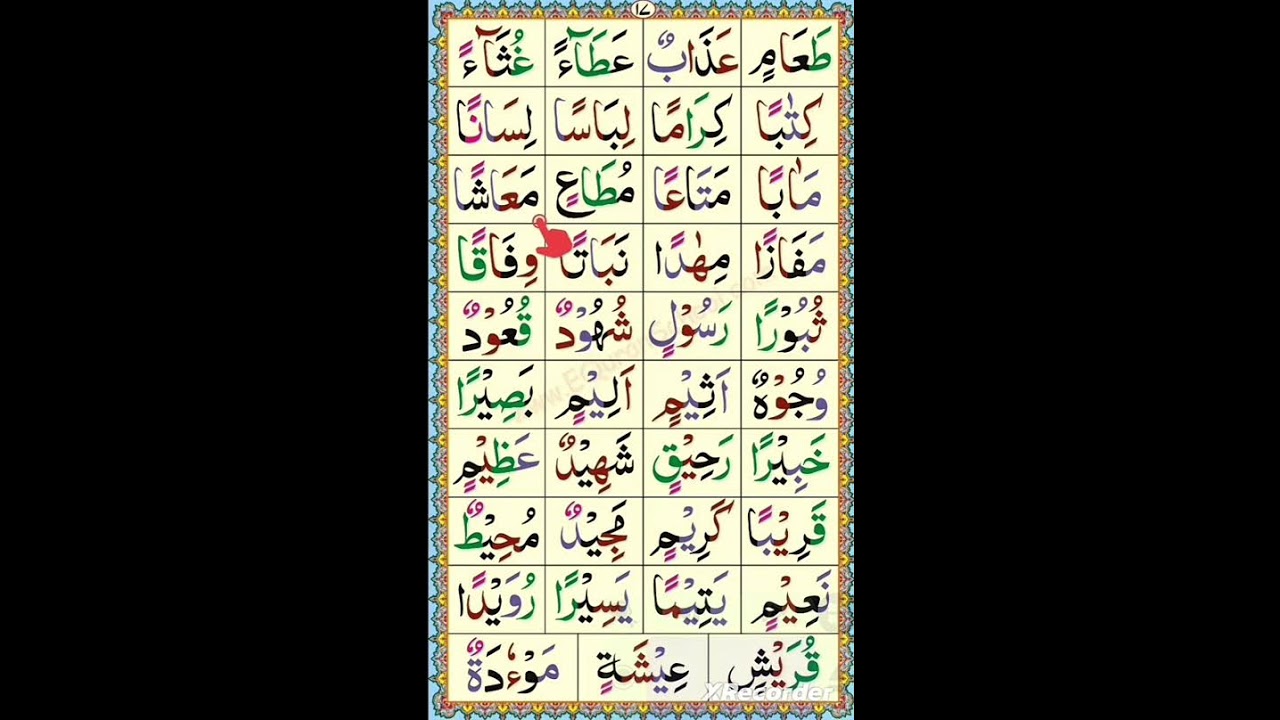 ١٧
طَعَامٍ عَذَابٌ عَطَآءً غُثَآءً
كِتٰبًا كِرَامًا لِبَاسًا لِسَانًا
مَاٰبًا مَتَاعًا مُطَاعٍ مَعَاشًا
مَفَازًا مِهٰدًا نَبَاتًا وِفَاقًا
ثُبُوْرًا رَسُوْلٍ شُهُوْدٌ قُعُوْدٌ
وُجُوْهٌ اَثِيْمٍ اَلِيْمٍ بَصِيْرًا
خَبِيْرًا رَحِيْقٍ شَهِيْدٌ عَظِيْمٍ
قَرِيْبًا كَرِيْمٍ مَجِيْدٌ مُحِيْطٌ
نَعِيْمٍ يَتِيْمًا يَسِيْرًا رُوَيْدًا
قُرَيْشٍ عِيْشَةٍ مَوْءٗدَةٌ
XRecorder